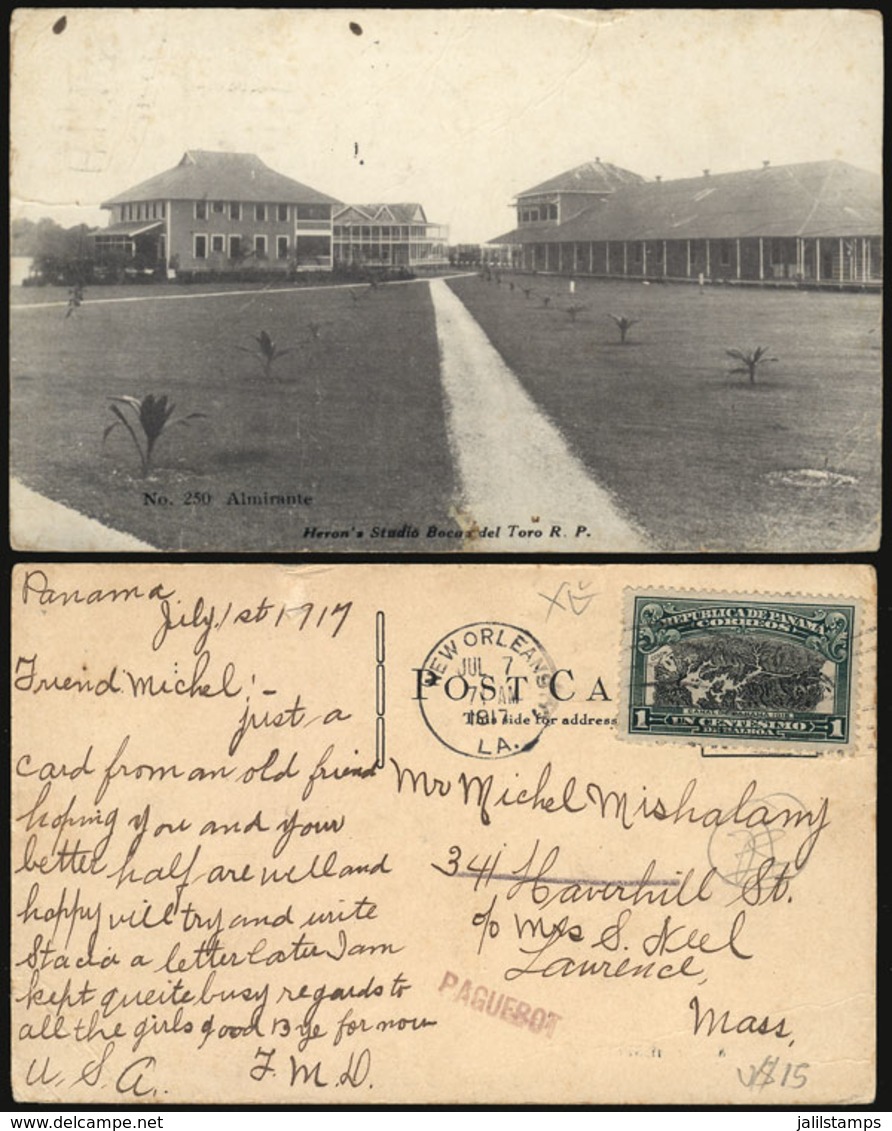 No. 250 Almirante
Heron's Studio Bocas del Toro R. P.
Panama
July 1st 1917
Friend Michel! -
just a
card from an old friend
hoping you and your
better half are well and
happy will try and write
Stacia a letter later I am
kept queite busy regards to
all the girls good Bye for now
U. S. A. F. M. D.
NEW ORLEANS
JUL 7
7 AM
1917
LA.
POST CA
This side for address
REPUBLICA DE PANAMA
CORREOS
1 UN CENTESIMO 1
DE BALBOA
Mr Michel Mishalany
341 Haverhill St.
c/o Mrs S. Neel
Lawrence,
Mass,
PAQUEBOT
$15
jalilstamps